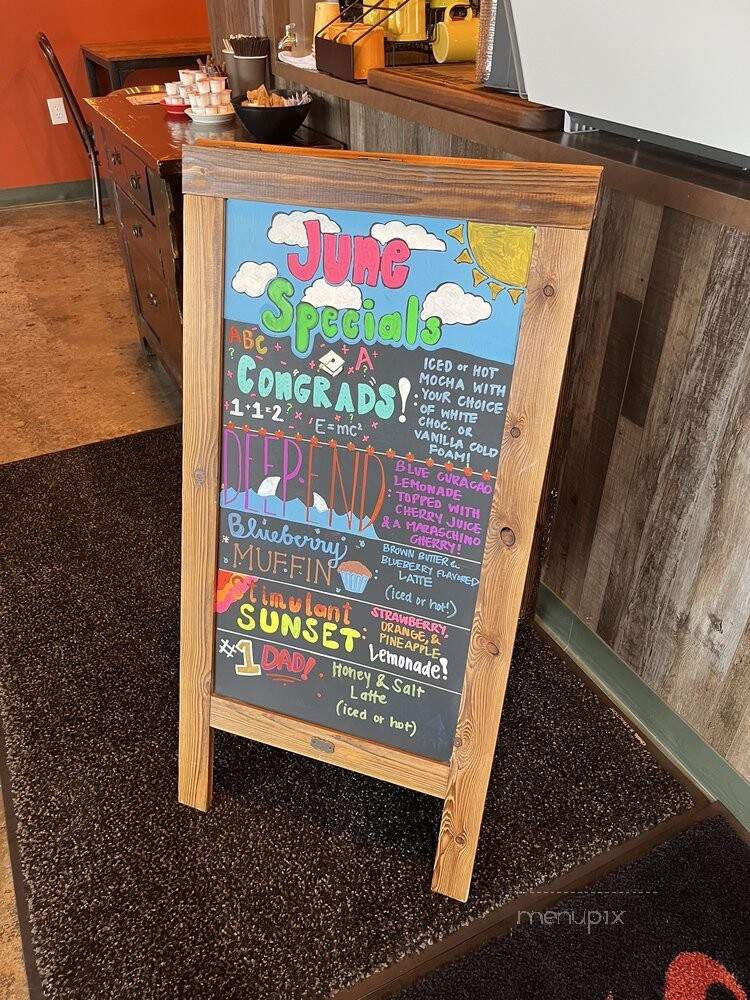 June
Specials
ABC
A+
CONGRADS!
1+1=2
E=mc²
ICED or HOT
MOCHA WITH
YOUR CHOICE
OF WHITE
CHOC. OR
VANILLA COLD
FOAM!
DEEP END
BLUE CURACAO
LEMONADE
TOPPED WITH
CHERRY JUICE
& A MARASCHINO
CHERRY!
Blueberry
MUFFIN
BROWN BUTTER &
BLUEBERRY FLAVORED
LATTE
(iced or hot!)
Stimulant
SUNSET:
STRAWBERRY,
ORANGE, &
PINEAPPLE
Lemonade!
#1 DAD!
Honey & Salt
Latte
(iced or hot)
menupix